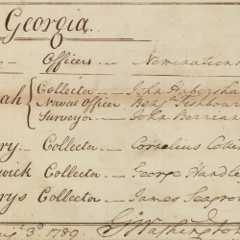 Georgia.
Officers Nominations
ah { Collector John Habersham
Naval Officer Benj. Fishbourn
Surveyor John Berrien
ry Collector Cornelius Colle
wick Collector George Handle
rys Collector James Seagrov
3d 1789 Go Washington